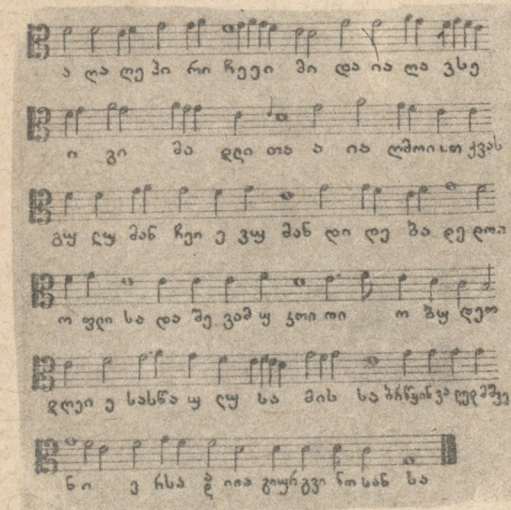 ა ღა ღე პი რი ჩეეი მი და ია ღა ვსე
ი გი მა დლი თა ა ია ღმოითქვას
გყ ლყ მან ჩეი ე ვყ მან დი დე ბა დე დოა
ო ფლი სა და შე ვამ ყ კოი ოი ო ბყ დეო
დღეი ე სასწა ყ ლყ სა მის სა ბრწყინვა ლედ მშვე
ნი ე რსა დ იია გიყრგვი ნო სან სა